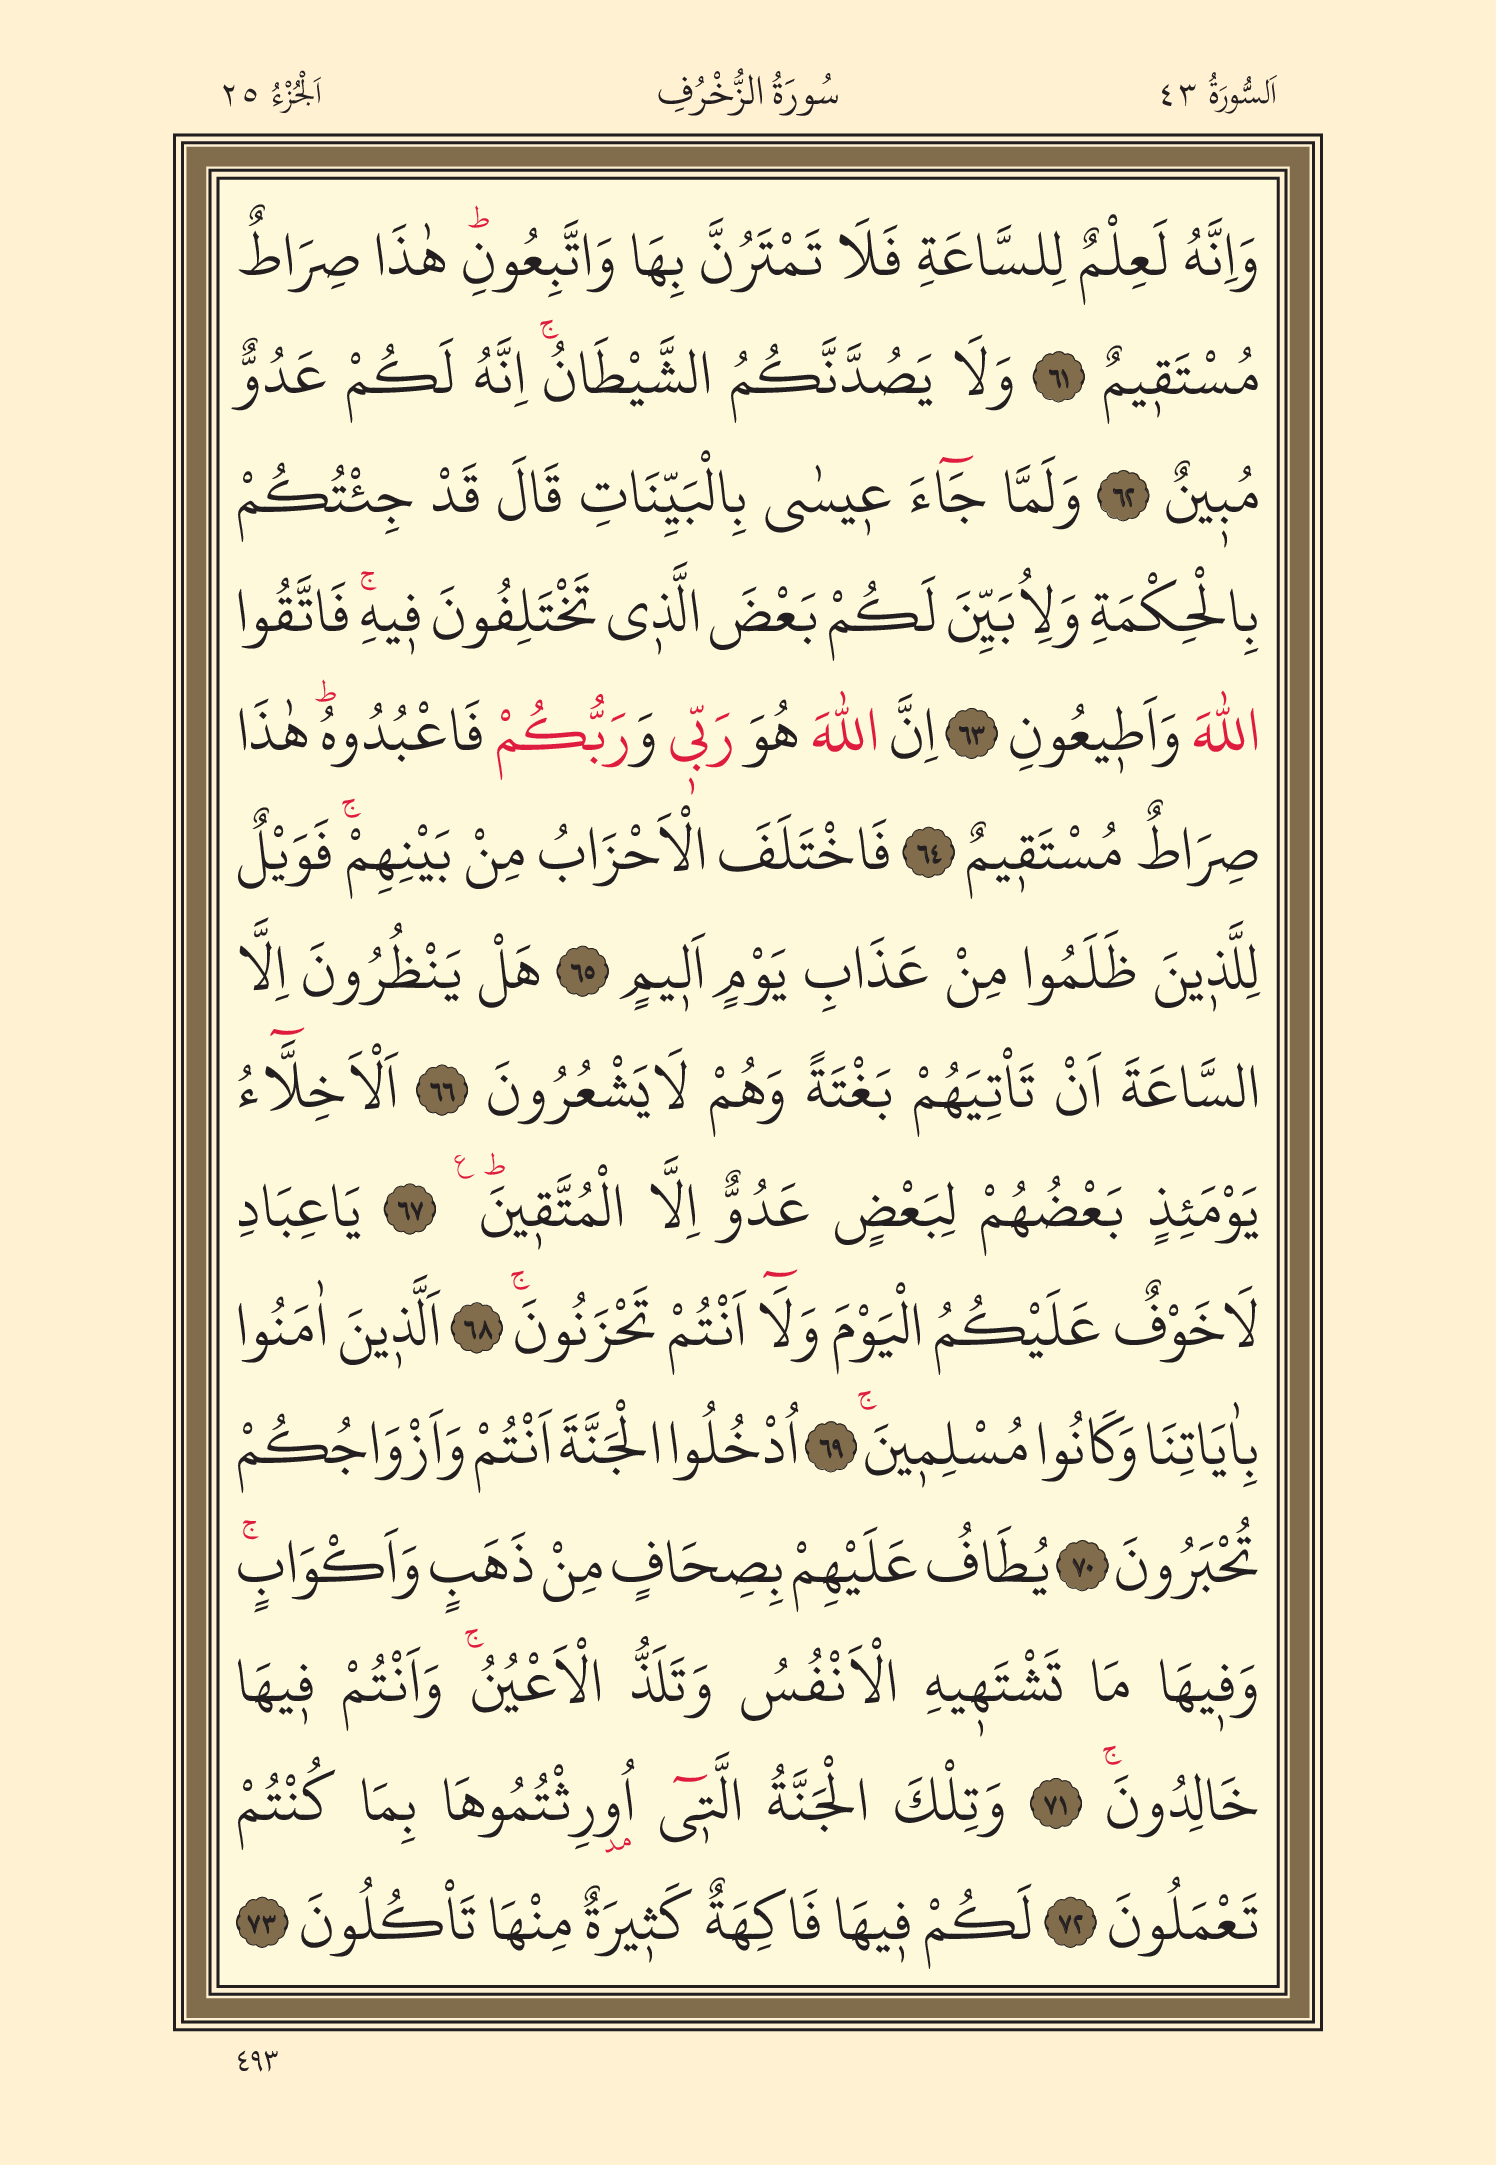 اَلسُّورَةُ ٤٣ سُورَةُ الزُّخْرُفِ اَلْجُزْءُ ٢٥
وَاِنَّهُ لَعِلْمٌ لِلسَّاعَةِ فَلَا تَمْتَرُنَّ بِهَا وَاتَّبِعُونِۜ هٰذَا صِرَاطٌ
مُسْتَقٖيمٌ ٦١ وَلَا يَصُدَّنَّكُمُ الشَّيْطَانُۚ اِنَّهُ لَكُمْ عَدُوٌّ
مُبٖينٌ ٦٢ وَلَمَّا جَٓاءَ عٖيسٰى بِالْبَيِّنَاتِ قَالَ قَدْ جِئْتُكُمْ
بِالْحِكْمَةِ وَلِاُبَيِّنَ لَكُمْ بَعْضَ الَّذٖى تَخْتَلِفُونَ فٖيهِۚ فَاتَّقُوا
اللّٰهَ وَاَطٖيعُونِ ٦٣ اِنَّ اللّٰهَ هُوَ رَبّٖى وَرَبُّكُمْ فَاعْبُدُوهُۜ هٰذَا
صِرَاطٌ مُسْتَقٖيمٌ ٦٤ فَاخْتَلَفَ الْاَحْزَابُ مِنْ بَيْنِهِمْۚ فَوَيْلٌ
لِلَّذٖينَ ظَلَمُوا مِنْ عَذَابِ يَوْمٍ اَلٖيمٍ ٦٥ هَلْ يَنْظُرُونَ اِلَّا
السَّاعَةَ اَنْ تَاْتِيَهُمْ بَغْتَةً وَهُمْ لَا يَشْعُرُونَ ٦٦ اَلْاَخِلَّٓاءُ
يَوْمَئِذٍ بَعْضُهُمْ لِبَعْضٍ عَدُوٌّ اِلَّا الْمُتَّقٖينَۜ ع ٦٧ يَاعِبَادِ
لَا خَوْفٌ عَلَيْكُمُ الْيَوْمَ وَلَٓا اَنْتُمْ تَحْزَنُونَۚ ٦٨ اَلَّذٖينَ اٰمَنُوا
بِاٰيَاتِنَا وَكَانُوا مُسْلِمٖينَۚ ٦٩ اُدْخُلُوا الْجَنَّةَ اَنْتُمْ وَاَزْوَاجُكُمْ
تُحْبَرُونَ ٧٠ يُطَافُ عَلَيْهِمْ بِصِحَافٍ مِنْ ذَهَبٍ وَاَكْوَابٍۚ
وَفٖيهَا مَا تَشْتَهٖيهِ الْاَنْفُسُ وَتَلَذُّ الْاَعْيُنُۚ وَاَنْتُمْ فٖيهَا
خَالِدُونَۚ ٧١ وَتِلْكَ الْجَنَّةُ الَّتٖٓى اُورِثْتُمُوهَا بِمَا كُنْتُمْ
تَعْمَلُونَ ٧٢ لَكُمْ فٖيهَا فَاكِهَةٌ كَثٖيرَةٌ مِنْهَا تَاْكُلُونَ ٧٣
٤٩٣